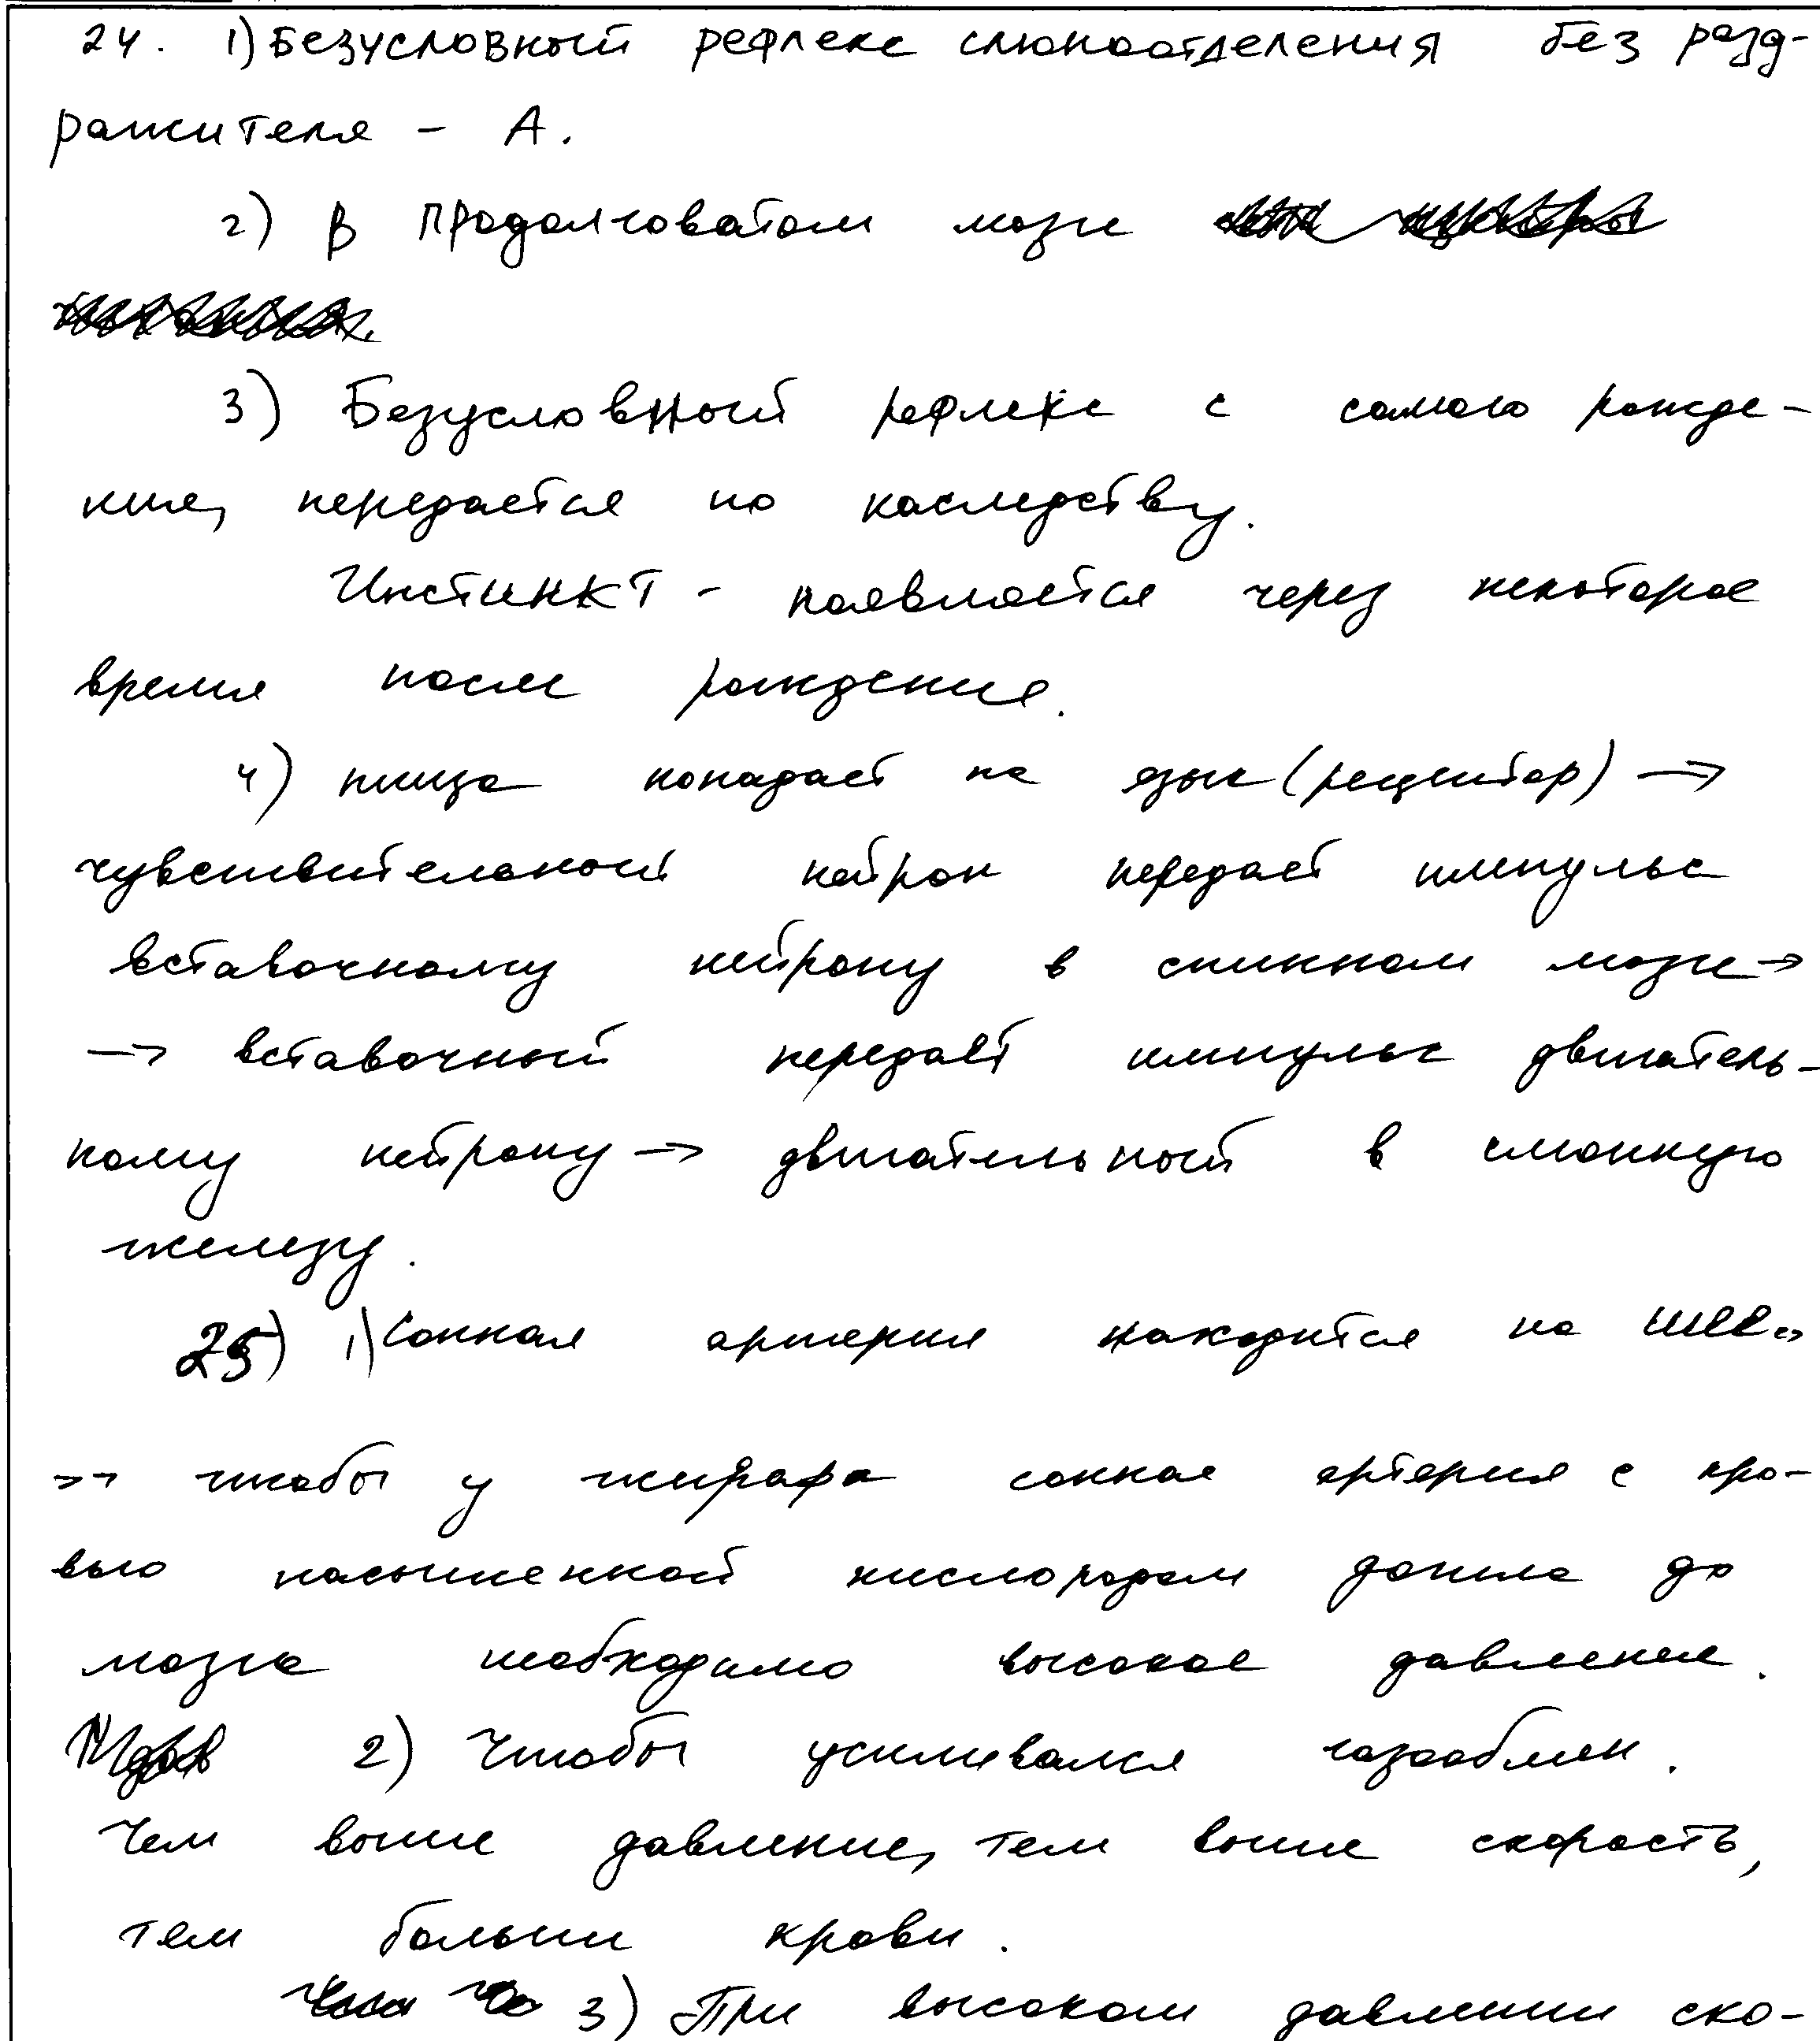 24. 1) Безусловный рефлекс слюноотделения без разд-
ражителя - А.
2) В продолговатом мозге
3) Безусловный рефлекс с самого рожде-
ния, передается по наследству.
Инстинкт - появляется через некоторое
время после рождения.
4) пища попадает на язык (рецептор) →
чувствительный нейрон передает импульс
вставочному нейрону в спинном мозге →
→ вставочный передаёт импульс двигатель-
ному нейрону → двигательный в слюнную
железу.
25) 1) Сонная артерия находится на шее,
чтобы у жирафа сонная артерия с кро-
вью насыщенной кислородом дошла до
мозга необходимо высокое давление.
2) Чтобы усиливался газообмен.
Чем выше давление, тем выше скорость,
тем больше крови.
3) При высоком давлении ско-